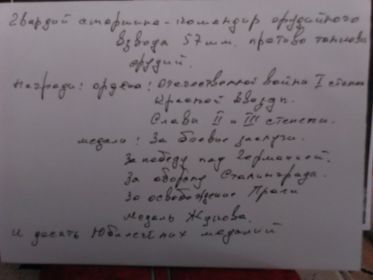 Гвардий старшина - командир орудийного
взвода 57 мм. противо танковы
орудий.
Награды: ордена: Отечественной войны I степе
Красной Звезды.
Слава II и III степени.
медали: За боевые заслуги.
За победу над Германией.
За оборону Сталинграда.
За освобождение Праги
Медаль Жукова.
и десять Юбилейных медалий